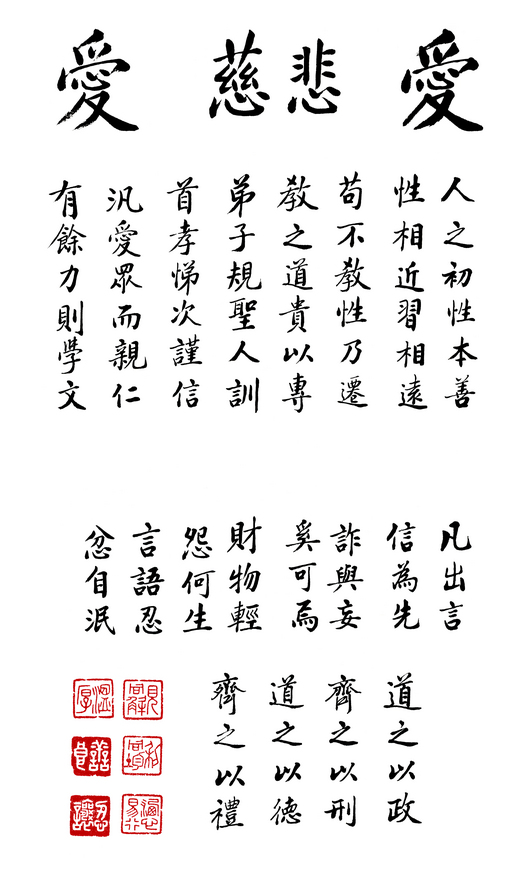 愛 慈悲 愛
人之初性本善
性相近習相遠
苟不教性乃遷
教之道貴以專
弟子規聖人訓
首孝悌次謹信
汎愛眾而親仁
有餘力則學文
凡出言
信為先
詐與妄
奚可焉
財物輕
怨何生
言語忍
忿自泯
道之以政
齊之以刑
道之以德
齊之以禮
溫厚
善良
忍讓